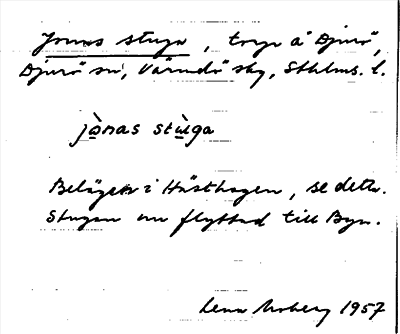 Jonas stuga, torp å Djurö,
Djurö sn, Värmdö skg, Sthlms. l.
jònas stùga
Belägen i Hästhagen, se detta.
Stugan nu flyttad till Byn.
Lena Moberg 1957